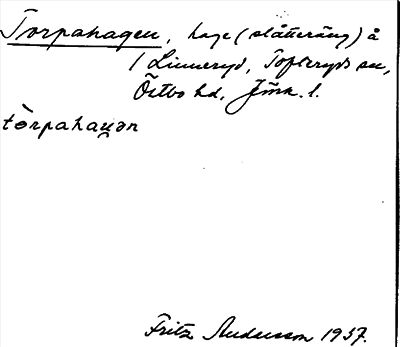 Torpahagen, hage (slåtteräng) å
/ Linneryd, Tofteryds sn,
Östbo hd, Jönk. l.
tòrpahaɡən
Fritz Andersson 1937.